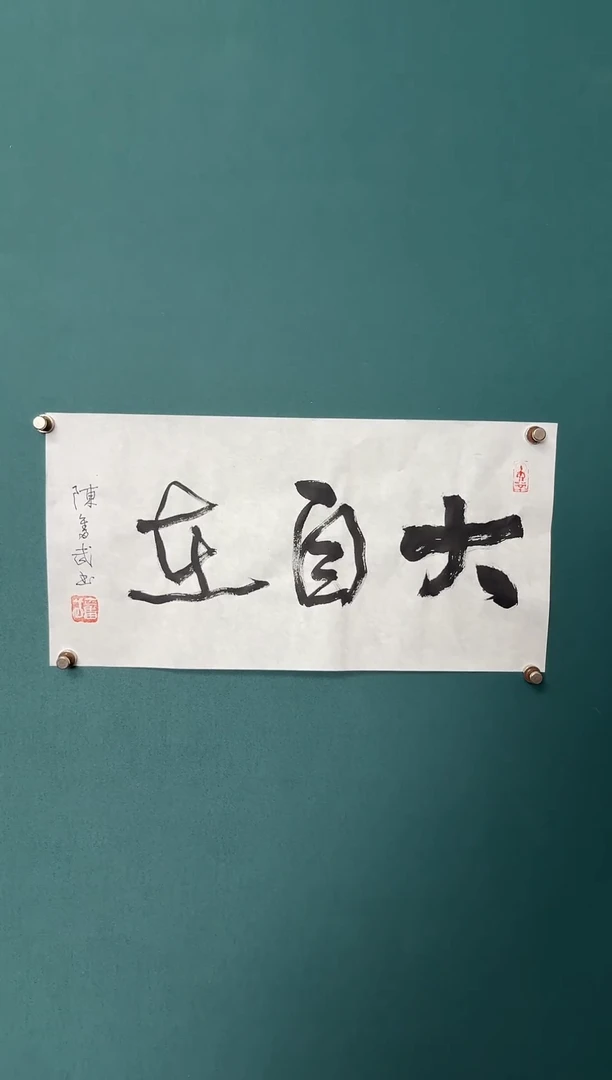 大自在
陳武书